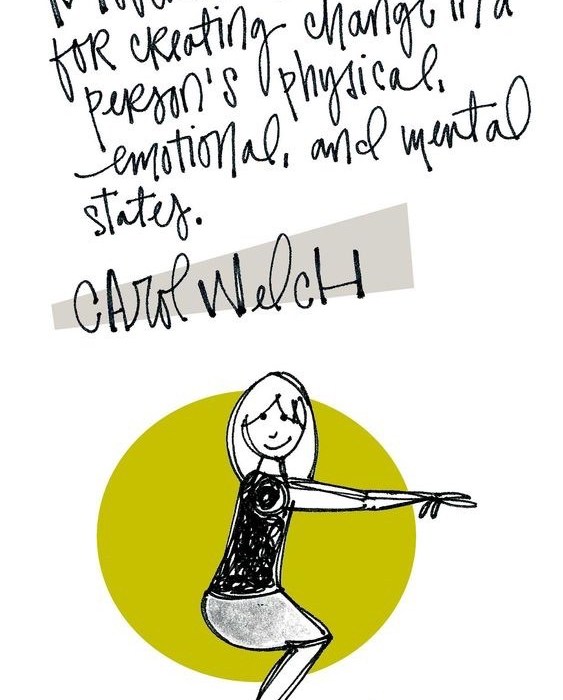 for creating change in a
person's physical,
emotional, and mental
states.
Carol Welch